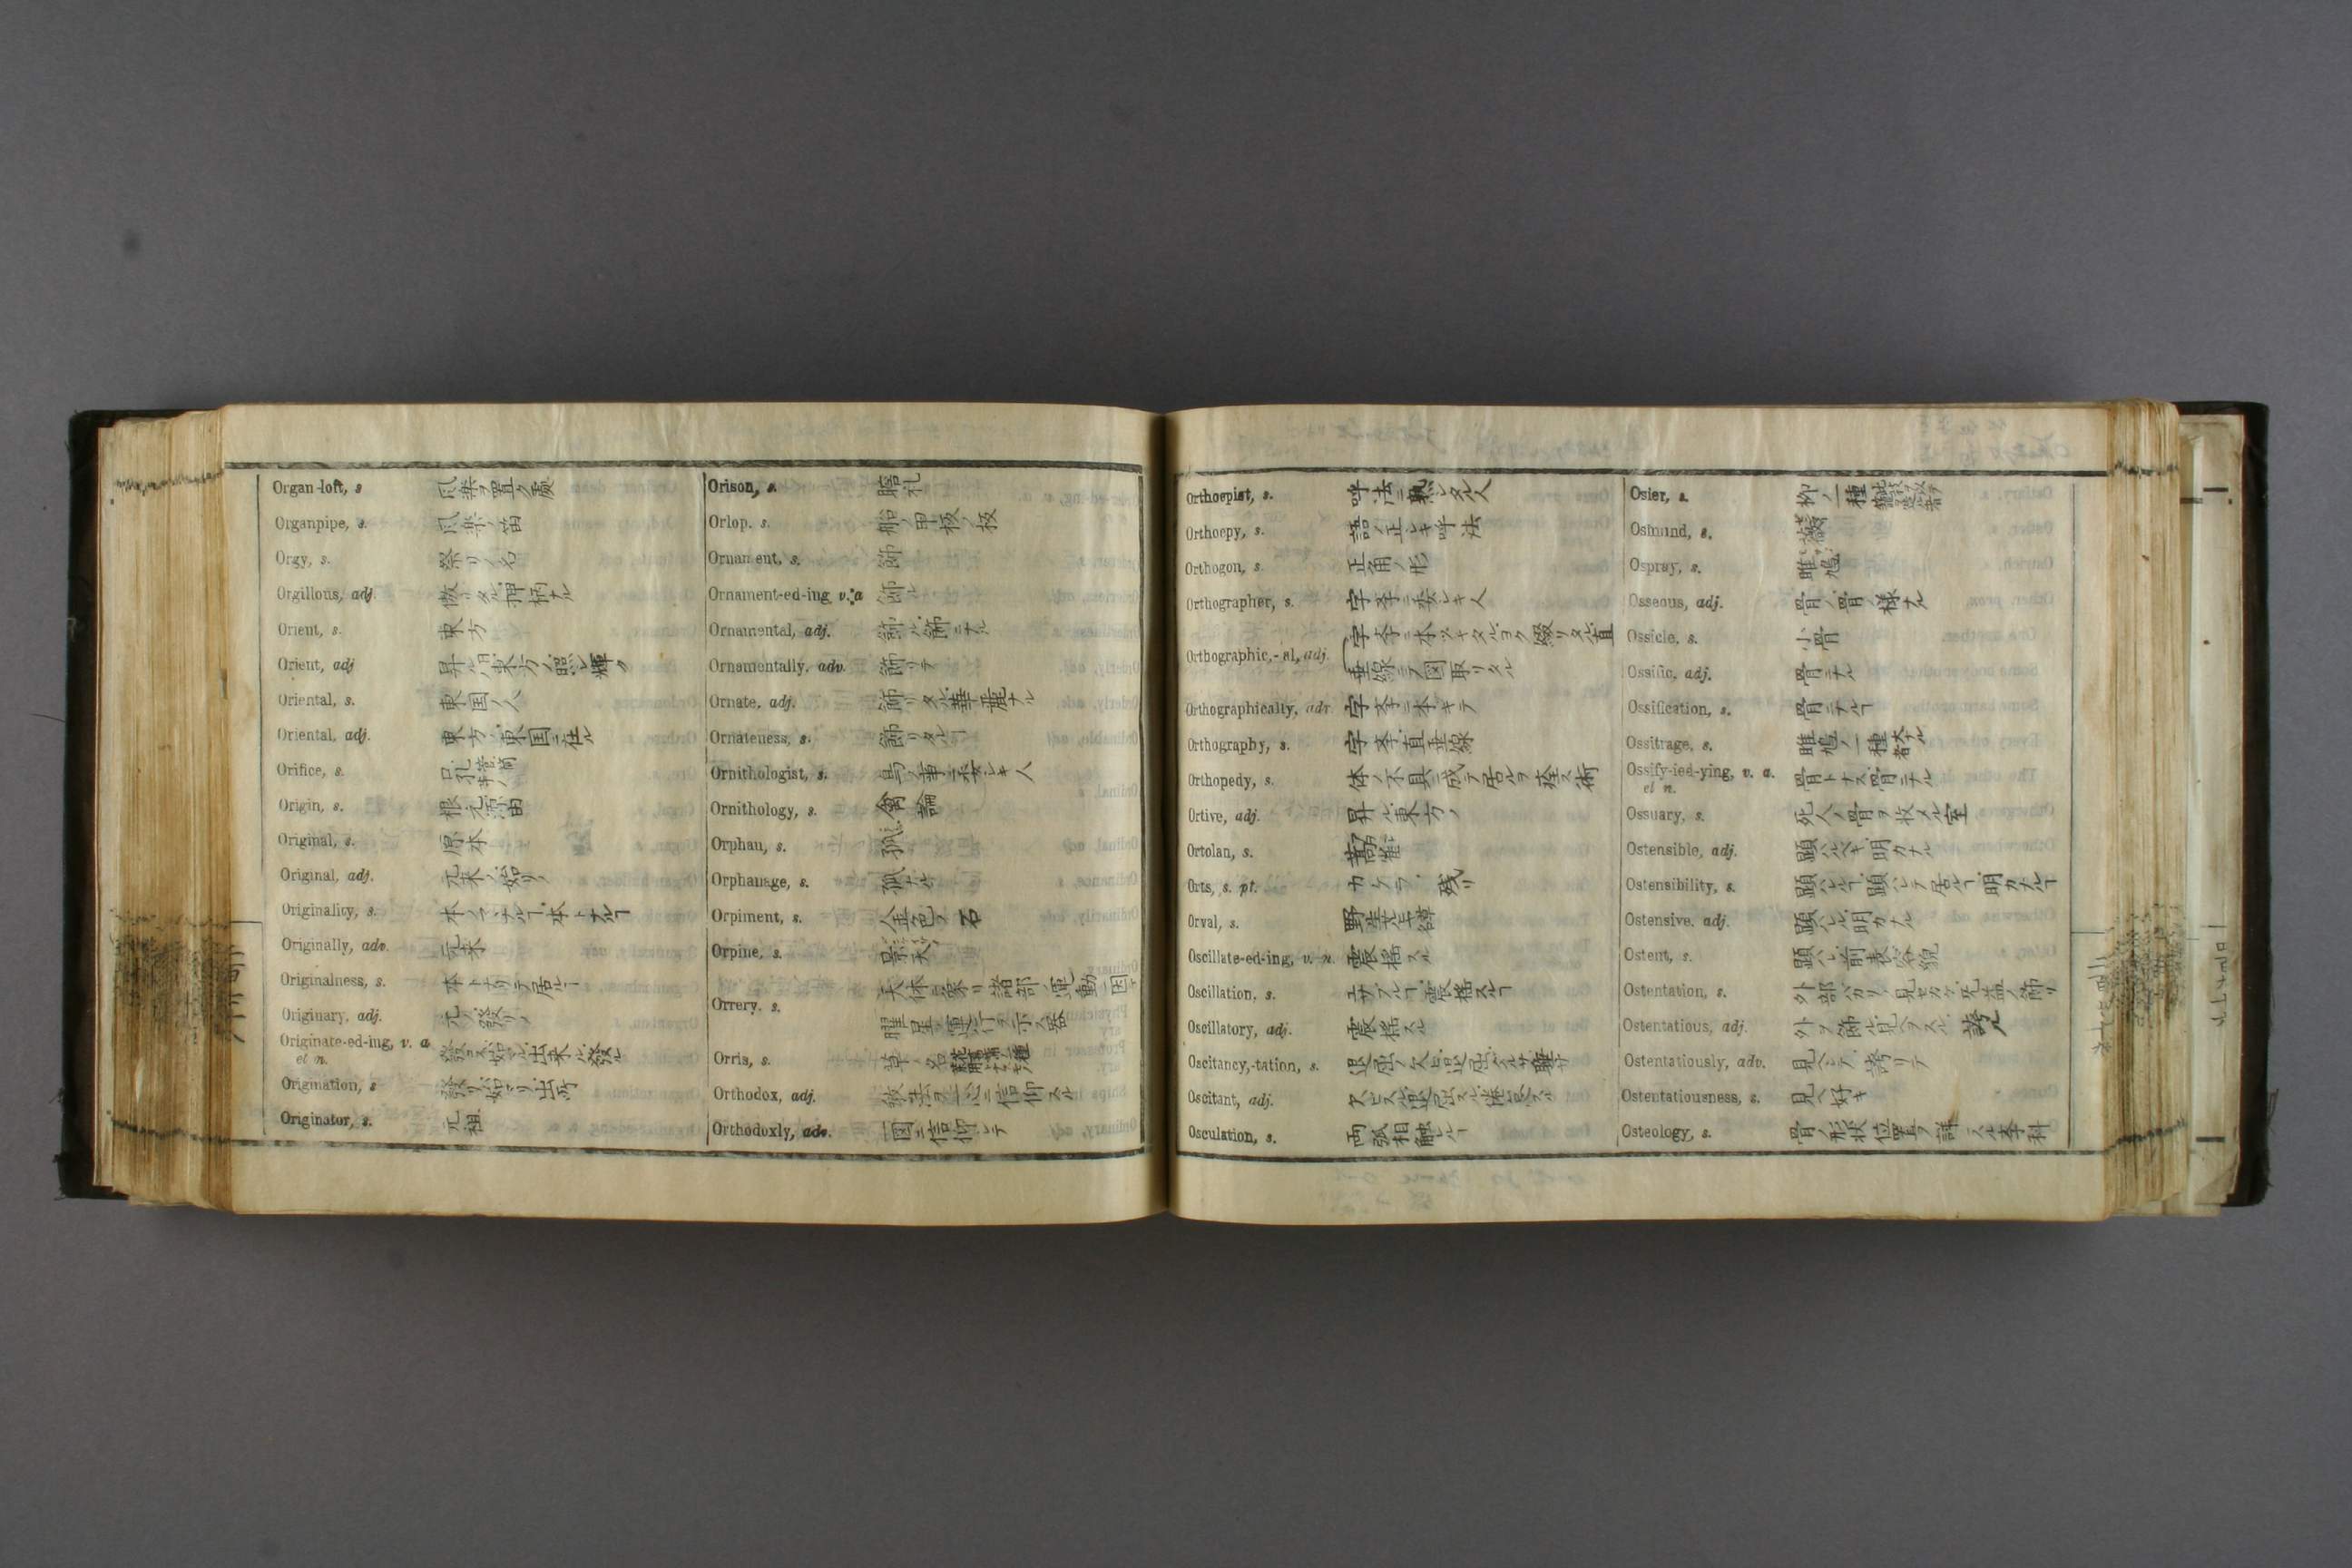 Organ-loft, s 風楽ヲ置ク處
Organpipe, s. 風楽ノ笛
Orgy, s. 祭リノ名
Orgillous, adj.
Orient, s. 東方
Orient, adj 昇ル。東方ノ。照シ輝ク
Oriental, s. 東国ノ人
Oriental, adj. 東方ノ。東国ニ在ル
Orifice, s. 口。孔
Origin, s. 根元。原由
Original, s. 原本
Original, adj. 元来ノ。始リノ
Originality, s.
Originally, adv. 元来
Originalness, s. 本トナリテ居ルヿ
Originary, adj. 元ノ。發リノ
Originate-ed-ing, v. a. et n. 發ス。始ル。出来ル。發ル
Origination, s 發リ。始マリ。出所
Originator, s. 元祖
Orison, s. 祷礼
Orlop. s. 船ノ甲板ノ板
Ornament, s. 飾
Ornament-ed-ing v. a 飾ル
Ornamental, adj. 飾ル。飾ニナル
Ornamentally, adv. 飾リテ
Ornate, adj. 飾リタル。華麗ナル
Ornateness, s. 飾リタルヿ
Ornithologist, s. 鳥ノ事ニ委シキ人
Ornithology, s. 禽論
Orphan, s. 孤
Orphanage, s. 孤ナルヿ
Orpiment, s. 金色ノ石
Orpine, s. 景天
Orrery, s. 天体ニ象リ諸部ノ運動ニ因テ
曜星ノ運行ヲ示ス器
Orris, s. 草ノ名
Orthodox, adj. 教法ヲ一途ニ信仰スル
Orthodoxly, adv. 一図ニ信仰シテ
Orthoepist, s. 呼法ニ熟シタル人
Orthoepy, s. 語ノ正シキ呼法
Orthogon, s. 正角ノ形
Orthographer, s. 字学ニ委シキ人
Orthographic,-al, adj. 字学ニ本ヅキタル。ヨク綴リタル。直
垂線ニテ図取リタル
Orthographically, adv 字学ニ本キテ
Orthography, s. 字学。直垂線
Orthopedy, s. 体ノ不具ニ成テ居ルヲ療ス術
Ortive, adj. 昇ル。東方ノ
Ortolan, s. 蒿雀
Orts, s. pl. カケラ。残リ
Orval, s.
Oscillate-ed-ing, v. n. 震揺スル
Oscillation, s. ユサブルヿ。震揺スルヿ
Oscillatory, adj. 震揺スル
Oscitancy,-tation, s.
Oscitant, adj.
Osculation, s. 両弧相触ルヽヿ
Osier, s. 柳ノ一種
Osmund, s. 薇
Ospray, s. 雎鳩
Osseous, adj. 骨ノ。骨ノ様ナル
Ossicle, s. 小骨
Ossific, adj. 骨ニナル
Ossification, s. 骨ニナルヿ
Ossifrage, s. 雎鳩ノ一種大ナル者
Ossify-ied-ying, v. a. et n. 骨トナス。骨ニナル
Ossuary, s. 死人ノ骨ヲ收メル室
Ostensible, adj. 顕ハルベキ。明カナル
Ostensibility, s. 顕ハルヽヿ。顕ハレテ居ルヿ。明カナルヿ
Ostensive, adj. 顕ハルヽ。明カナル
Ostent, s. 顕ハレ。前表。容貌
Ostentation, s. 外部バカリノ見セカケ。無益ノ飾リ
Ostentatious, adj. 外ヲ飾ル。見ヘヲスル。誇ル
Ostentatiously, adv. 見ヘシテ。誇リテ
Ostentatiousness, s. 見ヘ好キ
Osteology, s. 骨ノ形状位置ヲ詳ニスル学科